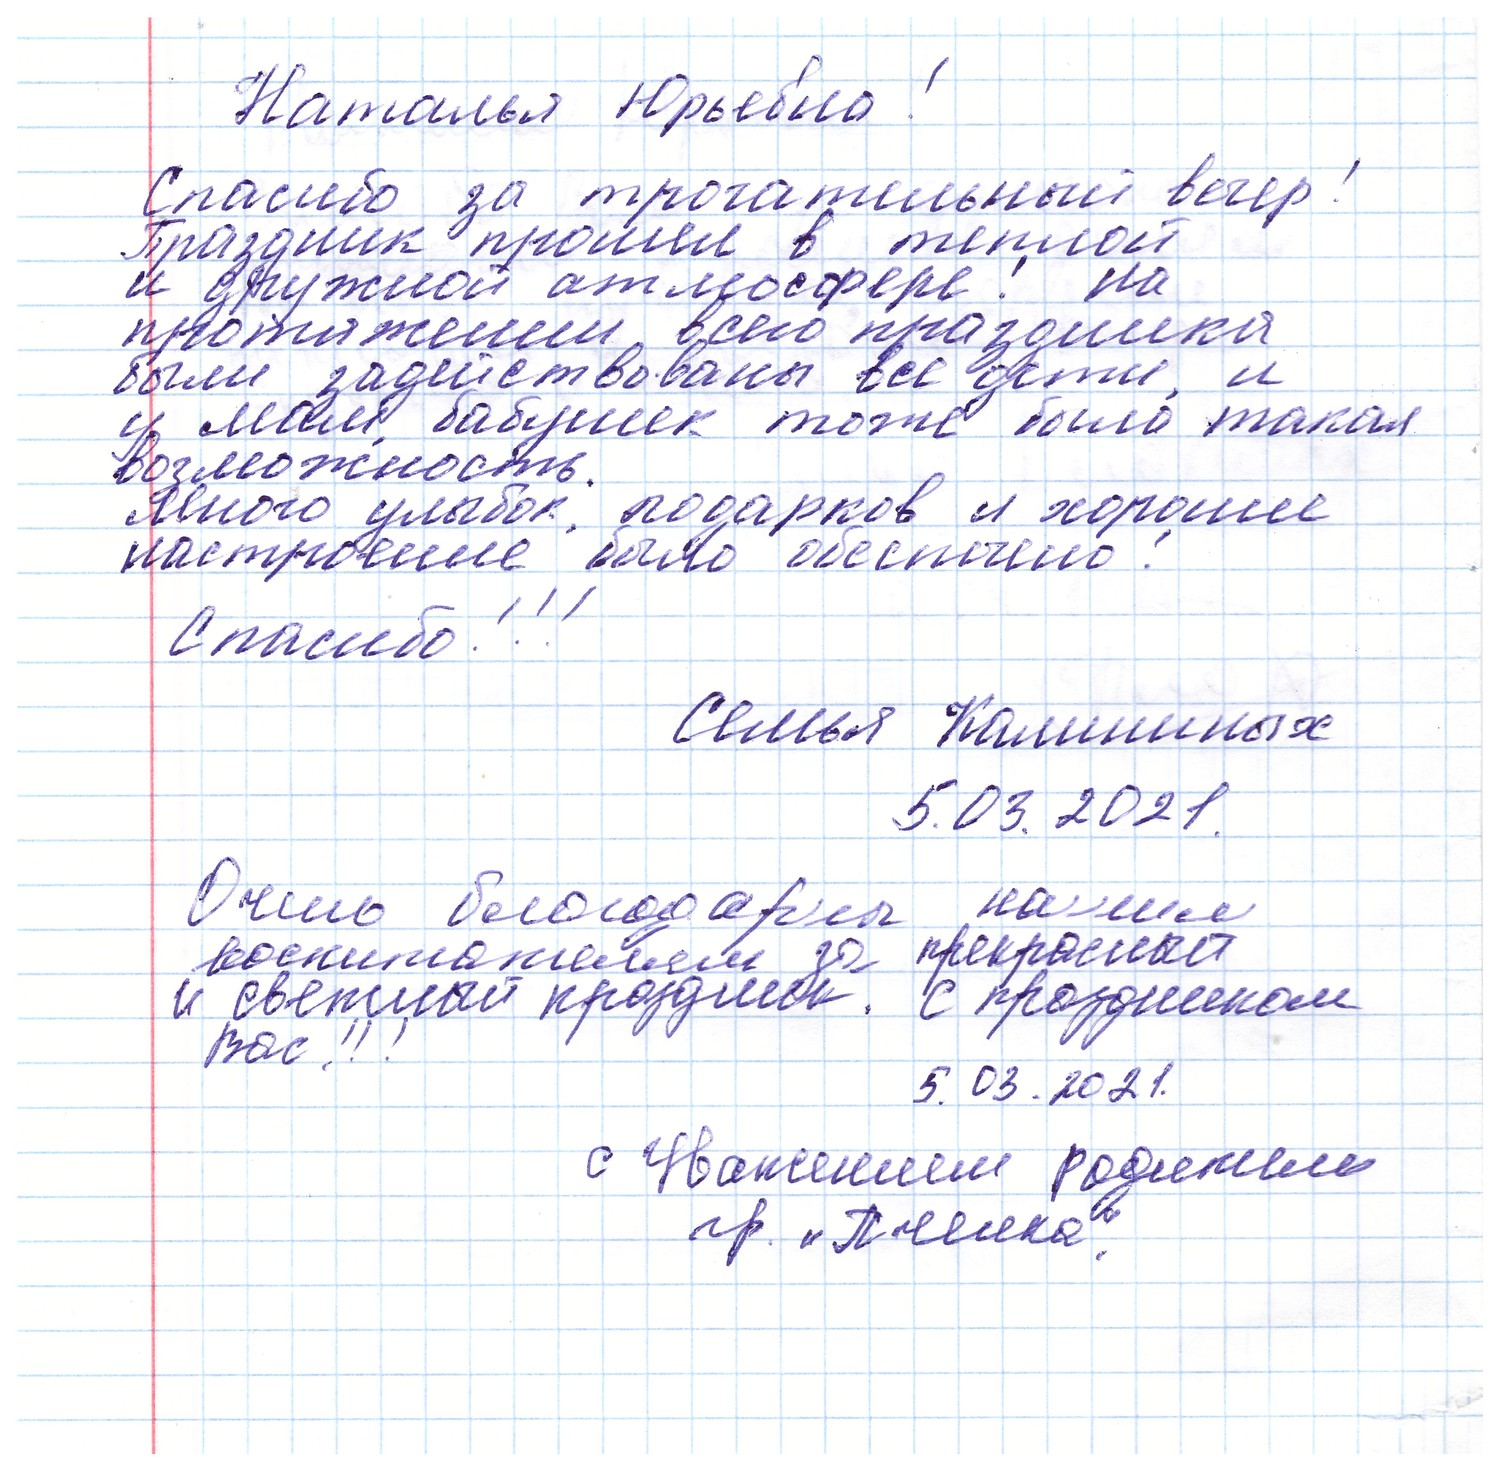 Наталья Юрьевна!
Спасибо за трогательный вечер!
Праздник прошел в теплой
и дружной атмосфере! На
протяжении всего праздника
были задействованы все дети, и
у мам, бабушек тоже была такая
возможность.
Много улыбок, подарков и хорошее
настроение было обеспечено!
Спасибо!!!
Семья Калининых
5.03.2021.
Очень благодарны нашим
воспитателям за прекрасный
и светлый праздник. С праздником
Вас!!!
5.03.2021.
с Уважением родители
гр. "Пчелка".